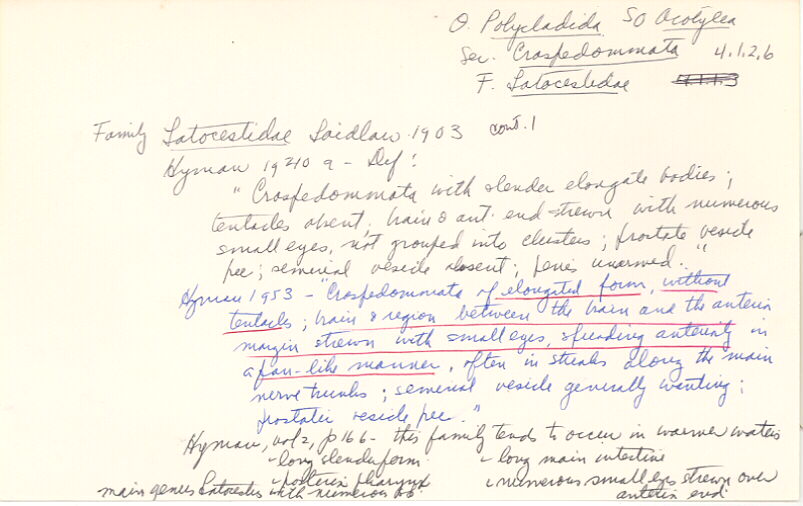 O. Polycladida SO Acotylea
Sec. Craspedommata 4.1.2.6
F. Latocestidae 4.1.1.3
Family Latocestidae Laidlaw 1903 cont. 1
Hyman 1940 a - Def:
"Craspedommata with slender elongate bodies;
tentacles absent; brain & ant. end strewn with numerous
small eyes, not grouped into clusters; prostatic vesicle
free; seminal vesicle absent; penis unarmed."
Hyman 1953 - "Craspedommata of elongated form, without
tentacles; brain & region between the brain and the anterior
margin strewn with small eyes, spreading anteriorly in
a fan-like manner, often in streaks along the main
nerve trunks; seminal vesicle generally wanting;
prostatic vesicle free."
Hyman, vol 2, p 166 - this family tends to occur in warmer waters
- long slender form - long main intestine
- posterior pharynx - numerous small eyes strewn over
main genus Latocestus with numerous anterior end.